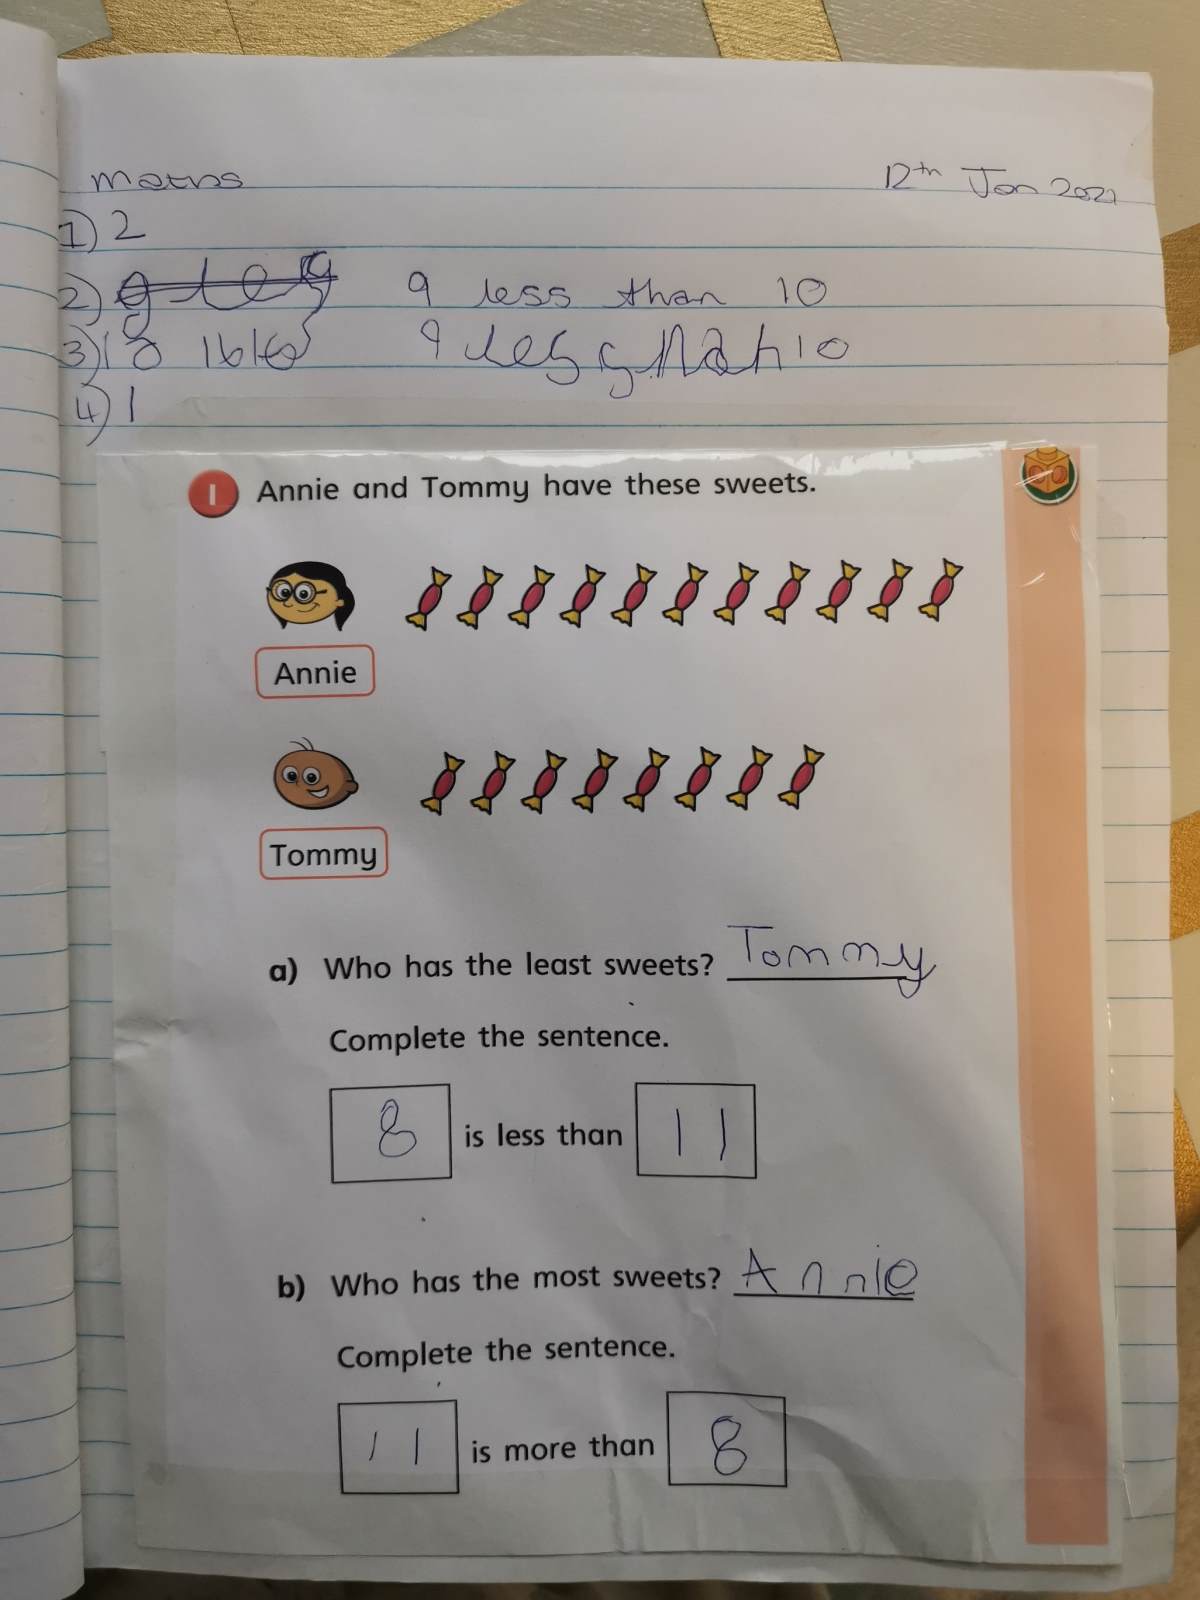 Maths 12th Jan 2021
1) 2
2) 9 less than 10
3) 9 less than 10
4) 1
1 Annie and Tommy have these sweets.
Annie
Tommy
a) Who has the least sweets? Tommy
Complete the sentence.
8 is less than 11
b) Who has the most sweets? Annie
Complete the sentence.
11 is more than 8